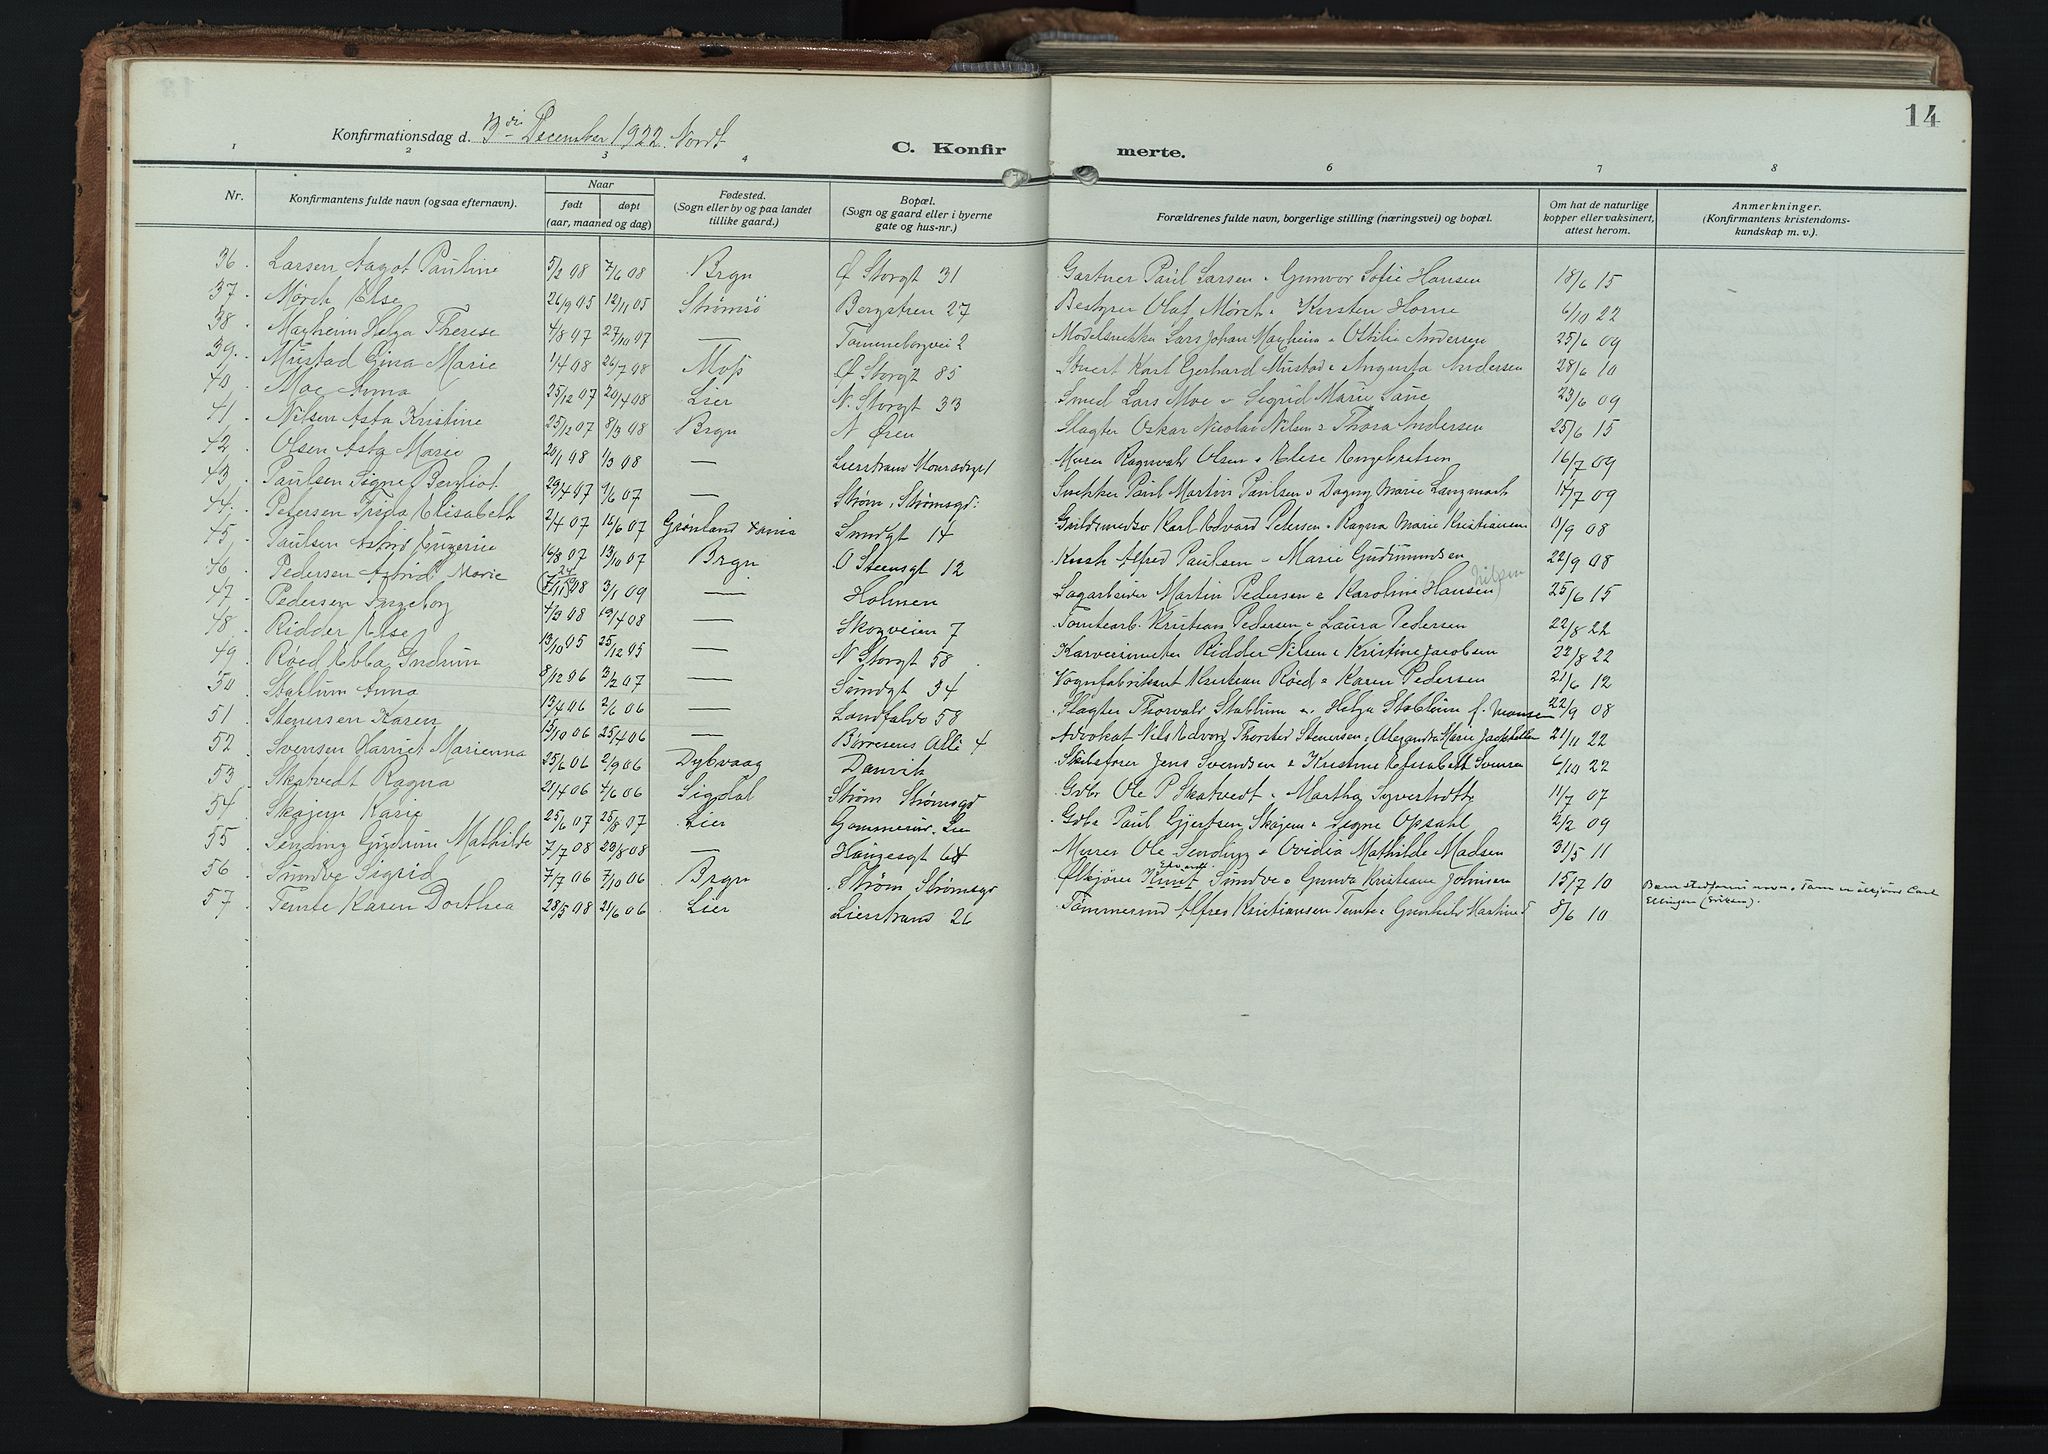 14
Konfirmationsdag d. 3die December 1922. Nordt
C. Konfirmerte.
1 2 3 4 6 7 8
Nr. Konfirmantens fulde navn (ogsaa efternavn). Naar født døpt (aar, maaned og dag) Fødested. (Sogn eller by og paa landet tillike gaard.) Bopæl. (Sogn og gaard eller i byerne gate og hus-nr.) Forældrenes fulde navn, borgerlige stilling (næringsvei) og bopæl. Om hat de naturlige kopper eller vaksinert, attest herom. Anmerkninger. (Konfirmantens kristendomskundskap m. v.).
36 Larsen Aagot Pauline 5/2 08 7/6 08 Brgn Ø Storgt 31 Gartner Paul Larsen o Gunvor Sofie Hansen 18/6 15
37 Mørch Else 26/9 05 12/11 05 Strømsø Bergstien 27 Bestyrer Olaf Mørch o Kirsten Horne 6/10 22
38 Mayheim Helga Therese 4/8 07 27/10 07 — Tomineborgvei 2 Modelsnekker Lars Johan Mayheim o Ottilie Andersen 25/6 09
39. Mustad Gina Marie 1/4 08 26/7 08 Moss Ø Storgt 85 Stuert Karl Gerhard Mustad o Augusta Andersen 28/6 10
40 Moe Anna 25/12 07 20/4 08 Lier N. Storgt 33 Smed Lars Moe o Sigrid Marie 23/6 09
41 Nilsen Asta Kristine 25/12 07 8/3 08 Brgn N Øren Slagter Oskar Nicolai Nilsen o Thora Andersen 25/6 15
42 Olsen Asta Marie 20/1 08 1/3 08 — Lierstrand Murer Ragnvald Olsen o Elise Engebretsen 16/7 09
43 Paulsen Signe Bergliot 29/4 07 9/6 07 — Strøm, Strømsgd: Snekker Paul Martin Paulsen o Dagny Marie Langmach 17/7 09
44 Petersen Frida Elisabeth 2/4 07 16/6 07 Grønland Sundgt 14 Guldsmedsv Karl Edvard Petersen o Ragna Marie Kristiansen 11/9 08
45 Paulsen Astrid Eugenie 16/8 07 13/10 07 Brgn O Steensgt 12 Kusk Alfred Paulsen o Marie Gudmundsen 22/9 08
46 Pedersen Astrid Marie 7/11 08 3/1 09 — Holmen Sagarbeider Martin Pedersen o Karoline Hansen) Nilsen 25/6 15
47 Pedersen Ingeborg 4/3 08 19/4 08 — Skogveien 7 Tomtearb. Kristian Pedersen o Laura Pedersen 22/8 22
48 Ridder Else 13/10 05 25/12 05 — N Storgt 58 Karversmester Ridder Nilsen o Kristine Jacobsen 22/8 22
49 Røed Ebba Gudrun 8/12 06 3/2 07 — Sundgt 34 Vognfabrikant Kristian Røed o Karen Pedersen 21/6 12
50 Stablum Anna 15/4 06 2/6 06 — Landfaldø 58 Slagter Thorvald Stablum o. Helga Stablum f. 22/9 08
51 Stenersen Karen 15/10 06 25/4 06 — Børresens Allé 4 Advokat Nils Edvard Thorsted Stenersen o Alexandra Marie 21/11 22
52 Svensen Harriet Marienna 25/6 06 2/9 06 Dybvaag Danvik Skibsfører Jens Svendsen o Kristine Elisabeth 6/10 22
53 Skatvedt Ragna 21/4 06 4/6 06 Sigdal Strøm Strømsgd Gdbr Ole P Skatvedt o Martha 11/7 07
54 Skøjem Karie 25/6 07 25/8 07 Lier Gdbr Paul Gjertsen Skøjem o Signe Opsahl 2/2 09
55 Sending Gudrun Mathilde 7/7 08 20/8 08 — Haugesgt 64 Murer Ole Sending o Ovidia Mathilde Madsen 31/5 11
56 Sundve Sigrid 7/7 06 7/10 06 Brgn Strøm Strømsgd Ølkjører Knut Edvardt Sundve o Gunda Kristiane Johnsen 15/7 10 o Carl
57 Temte Karen Dorthea 28/5 08 21/6 06 Lier Lierstrand 26 Tømmermd Alfred Kristiansen Temte o Gunhild Martine 8/6 10 Ellingsen (Eriksen).